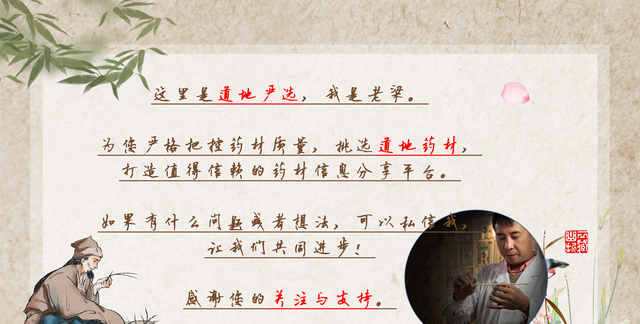 这里是道地严选，我是老梁。
为您严格把控药材质量，挑选道地药材，
打造值得信赖的药材信息分享平台。
如果有什么问题或者想法，可以私信我，
让我们共同进步！
感谢您的关注与支持。